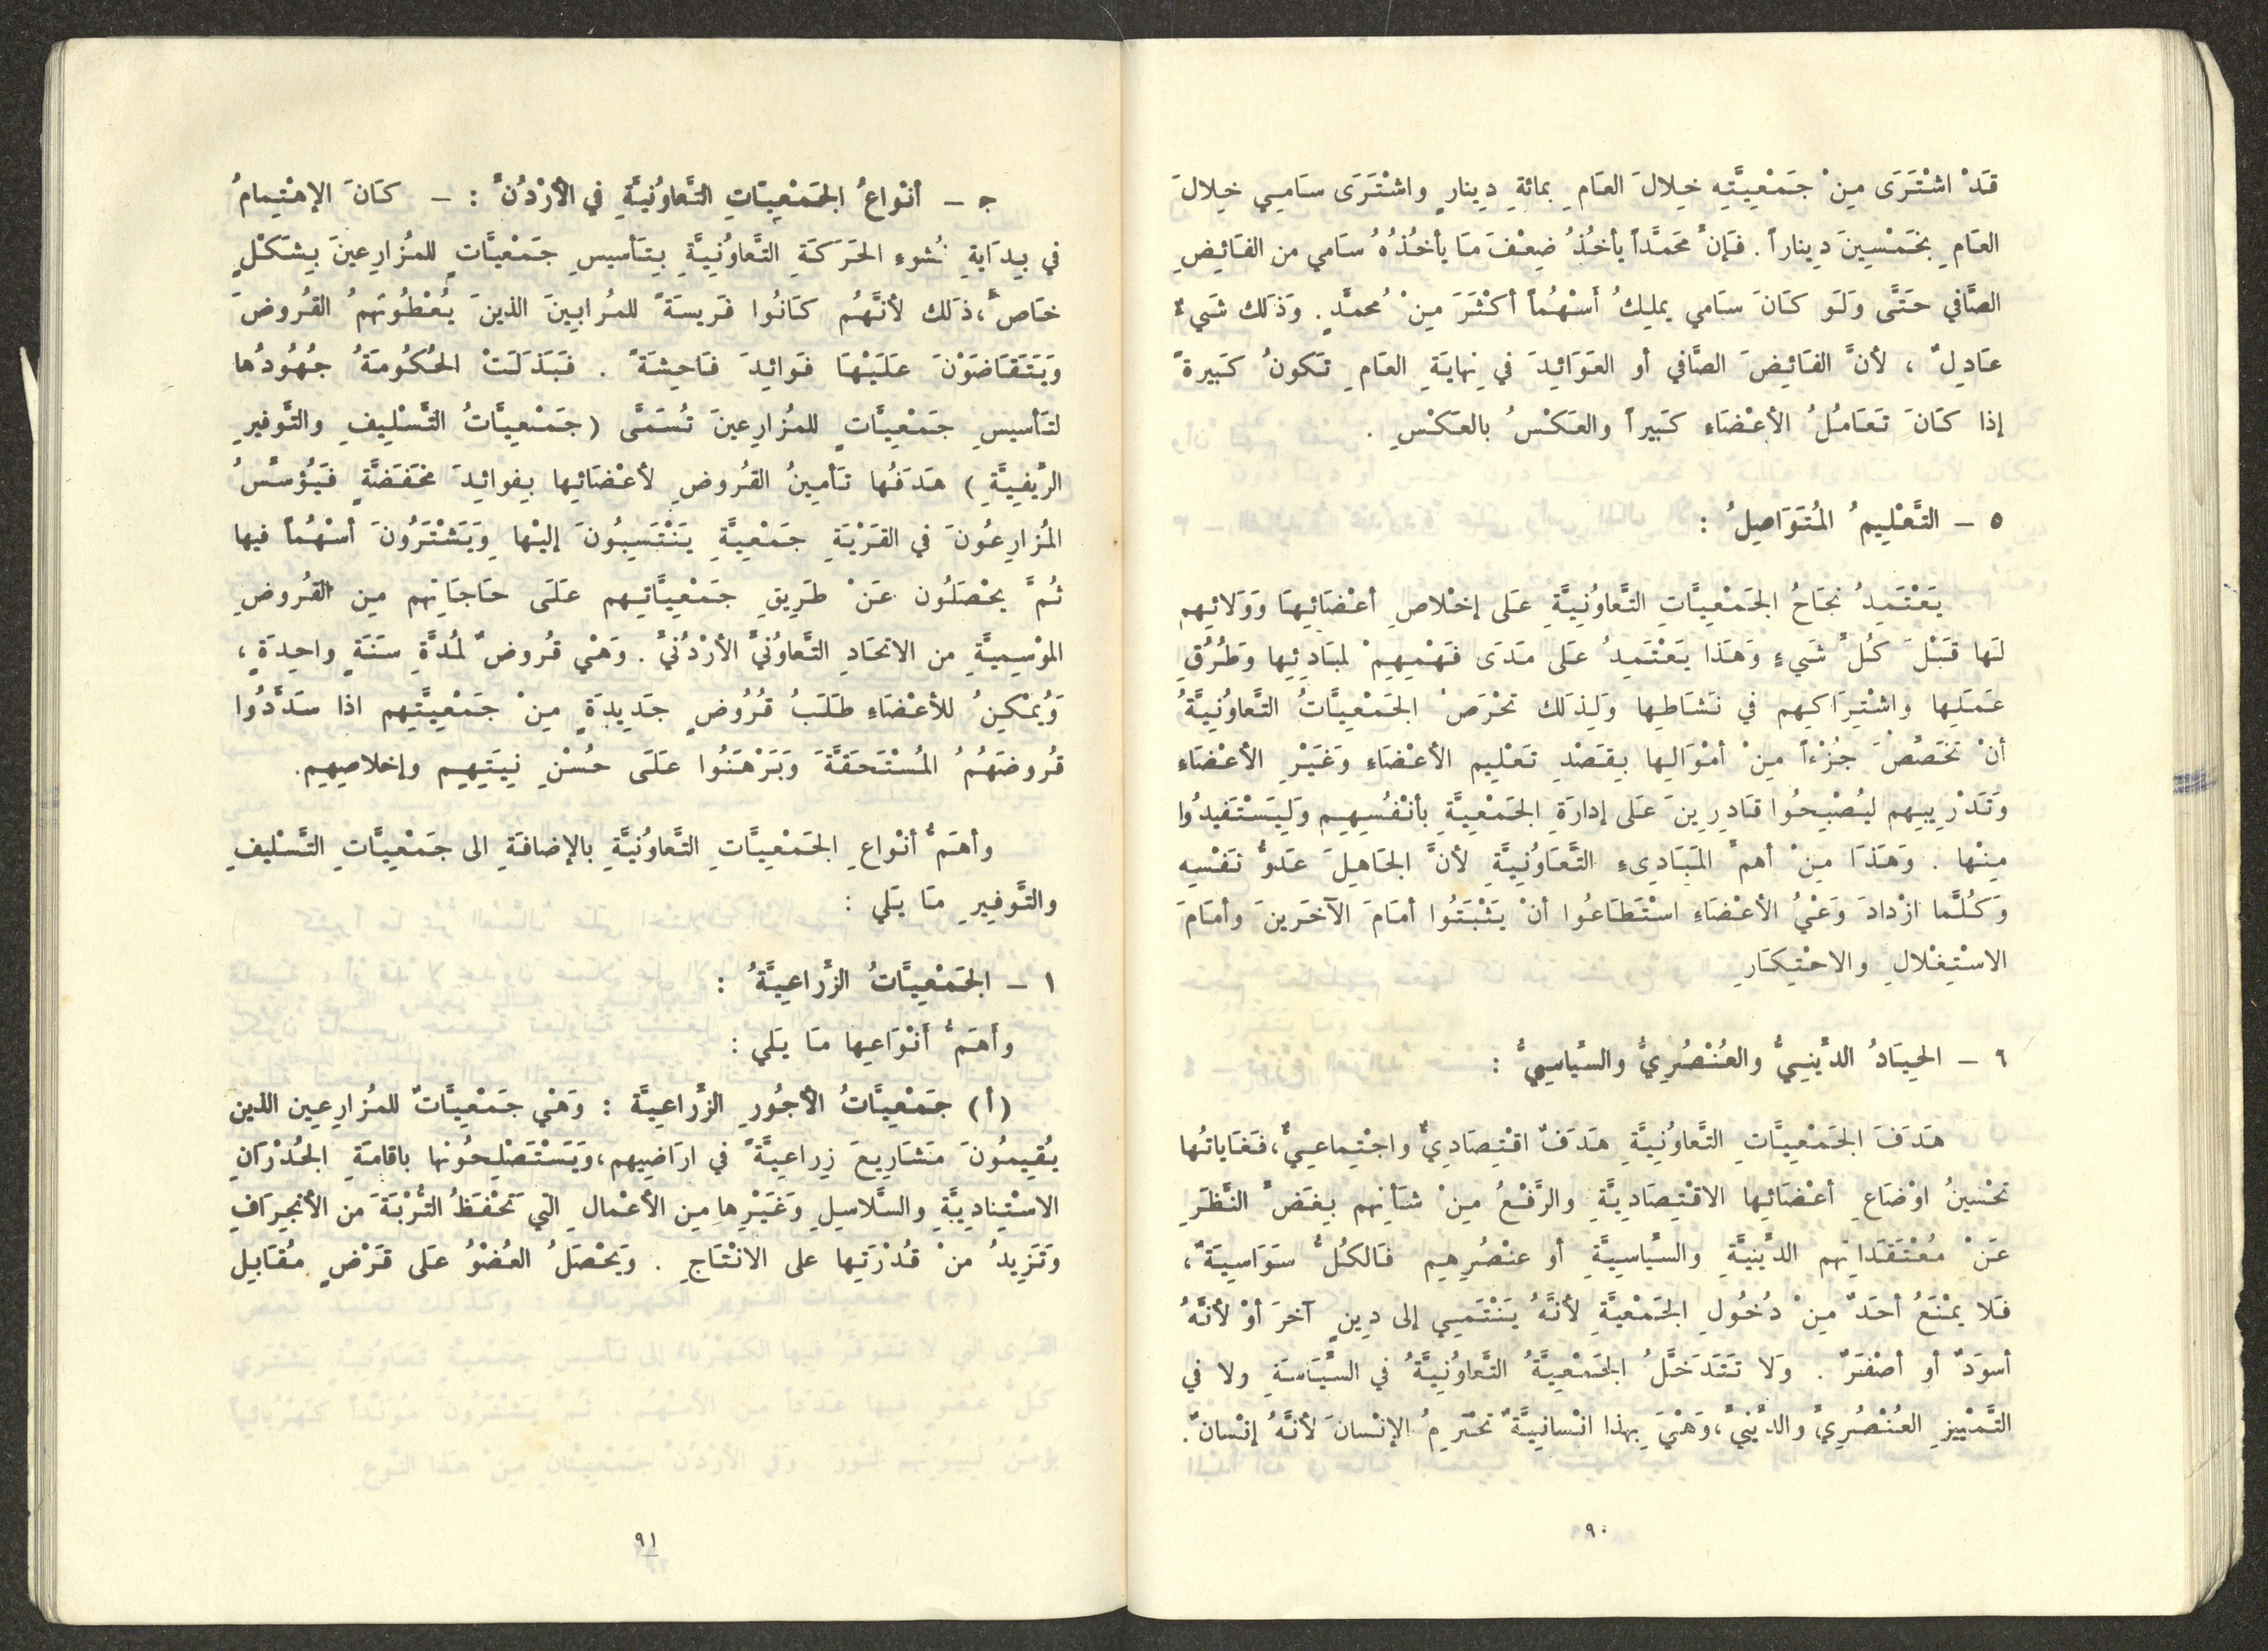 قَدْ اشْتَرَى مِنْ جَمْعِيَّتِه خِلالَ العَامِ بمائةِ دِينارٍ واشْتَرَى سَامِي خِلالَ
العَامِ بخَمْسِينَ دِيناراً . فَإنَّ محَمَّداً يأخُذُ ضِعْفَ مَا يأخُذُهُ سَامي من الفَائِضِ
الصَّافي حتَّى وَلَو كَانَ سَامي يملِكُ أَسْهُماً أكْثَرَ مِنْ مُحمَّدٍ . وَذَلك شَيءٌ
عَادِلٌ ، لأنَّ الفَائِضَ الصَّافي أو العَوَائِدَ في نِهايَةِ العَامِ تَكونُ كَبيرةً
إذا كَانَ تَعَامُلُ الأعْضَاءِ كَبيراً والعَكْسُ بالعَكْسِ .
٥ – التَّعْلِيمُ المُتَوَاصِلُ :
يَعْتَمِدُ نجَاحُ الجَمْعِيَّاتِ التَّعاوُنِيَّةِ عَلى إخْلاصِ أعْضَائِهَا وَوَلائِهِم
لَها قَبْلَ كُلِّ شَيءٍ وَهَذا يَعْتَمِدُ عَلى مَدَى فَهْمِهِمْ لمبَادِئِها وَطُرُقِ
عَمَلِها واشْتِرَاكِهِم في نَشَاطِها وَلِذَلك تحْرَصُ الجَمْعِيَّاتُ التَّعاوُنِيَّةُ
أنْ تخَصِّصَ جُزْءَاً مِنْ أمْوَالِها بِقَصْدِ تَعْلِيم الأعْضَاءِ وَغَيْرِ الأعْضَاءِ
وَتَدْرِيبِهِم ليُصْبِحُوا قَادِرِينَ عَلى إدارَةِ الجَمْعِيَّةِ بأنْفُسِهِم وَلِيَسْتَفيدُوا
مِنْها . وَهَذَا مِنْ أهمِّ المَبَادِىءِ التَّعَاوُنِيَّةِ لأنَّ الجَاهِلَ عَدوُّ نَفْسِهِ
وَكُلَّما ازْدادَ وَعْيُ الأعْضَاءِ اسْتَطَاعُوا أنْ يَثْبَتُوا أمَامَ الآخَرَينَ وأمَامَ
الاسْتِغْلالِ والاحْتِكَارِ
٦ – الحِيَادُ الدِّينِيُّ والعُنْصُرِيُّ والسِّياسِيُّ :
هَدَفَ الجَمْعِيَّاتِ التَّعاوُنِيَّةِ هَدَفٌ اقْتِصَادِيٌّ واجْتِماعِيٌّ، فَغَاياتُها
تحْسْينُ اوْضَاعِ أعْضَائِها الاقْتِصَادِيَّةِ والرَّفْعُ مِنْ شَأنِهم بِغَضِّ النَّظَرِ
عَنْ مُعْتَقَداتِهم الدِّينيَّةِ والسِّياسِيَّةِ أو عنْصُرِهِم فَالكُلُّ سَوَاسِيَةٌ ،
فَلا يمْنَعُ أحَدٌ مِنْ دُخُولِ الجَمْعيَّةِ لأنَّهُ يَنْتَمِي إلى دِينٍ آخرَ أوْ لأنَّهُ
أسوَدٌ أو أصْفَرٌ . وَلا تَتَدَخَّلُ الجَمْعِيَّةُ التَّعاوُنِيَّةُ في السِّيَاسَةِ ولا في
التَّمْييزِ العُنْصُرِيِّ والدِّينيِّ، وَهْيَ بِهذا انْسانيَّةٌ تحْتَرِمُ الإنْسانَ لأنَّهُ إنْسانٌ .
٩٠
ج – أنْواعُ الجَمْعِيَّاتِ التَّعاوُنيَّةِ في الأرْدُنِّ : – كَانَ الإهْتِمامُ
في بِدَايةِ نُشوءِ الحَرَكَةِ التَّعاوُنِيَّةِ بِتَأسيسِ جَمْعيَّاتٍ للمُزَارِعينَ بِشَكْلٍ
خَاصٍّ، ذَلك لأنَّهُم كَانُوا فَريسَةً للمُرابينَ الذينَ يُعْطُونَهمُ القُروضَ
وَيَتَقَاضَوْنَ عَلَيْهَا فَوائِدَ فَاحِشَةً . فَبَذَلَتْ الحُكُومَةُ جُهُودُها
لتَأسيسِ جَمْعِيَّاتٍ للمُزَارِعينَ تُسَمَّى (جَمْعِيَّاتُ التَّسْلِيفِ والتَّوفيرِ
الرِّيفِيَّةِ) هَدَفُها تَأمِينُ القُروضِ لأعْضَائِها بِفوائِدَ مخَفَضَّةٍ فَيُؤسِّسُ
المُزارِعُونَ في القَرْيَةِ جَمْعِيَّةِ يَنْتَسِبُونَ إليْها وَيَشْتَرُونَ أسْهُماً فيها
ثُمَّ يحْصَلُون عَنْ طَرِيقِ جَمْعِيَّاتِهِم عَلَى حَاجَاتِهم مِن القُروضِ
الموْسِمِيةَِّ من الاتحَادِ التَّعاوُنيِّ الأرْدُنيِّ . وَهْي قُروضٌ لمُدَّةِ سَنَةٍ واحِدَةٍ ،
وَيُمْكِنُ للأعْضَاءِ طَلَبُ قُرُوضٍ جَديدَةٍ مِنْ جَمْعِيَّتِهِم اذا سَدَّدُوا
قُروضَهُمُ المُسْتَحَقَّةَ وَبَرْهَنُوا عَلَى حُسْنِ نِيَتِهِيم وإخلاصِهِم.
وأهَمُّ أنْواعِ الجَمْعِيَّاتِ التَّعاوُنيَّةِ بالإضافَةِ الى جَمْعِيَّاتِ التَّسْليفِ
والتَّوفِيرِ مَا يَلي :
١ – الجَمْعِيَّاتُ الزِّراعيَّةُ :
وأَهَمُّ أَنْوَاعِها مَا يَلي :
(أ) جَمْعِيَّاتُ الأجُورِ الزِّراعيَّة : وَهْي جَمْعِيَّاتٌ للمُزارِعِين الذين
يُقِيمُونَ مَشَارِيعَ زِراعيَّةً في ارَاضِيهم، وَيَسْتَصْلِحُونَها باقامَةِ الجُدْرَانِ
الاسْتِنادِيَّةِ والسَّلاسِيلِ وَغَيْرِها مِن الأعْمالِ التي تَحْفَظُ التُّرْبَةَ من الأنْجِرَافِ
وَتَزِيدُ منْ قُدْرَتِها على الانْتَاجِ . وَيَحْصَلُ العُضْوُ عَلى قَرْضٍ مُقَابِل
٩١